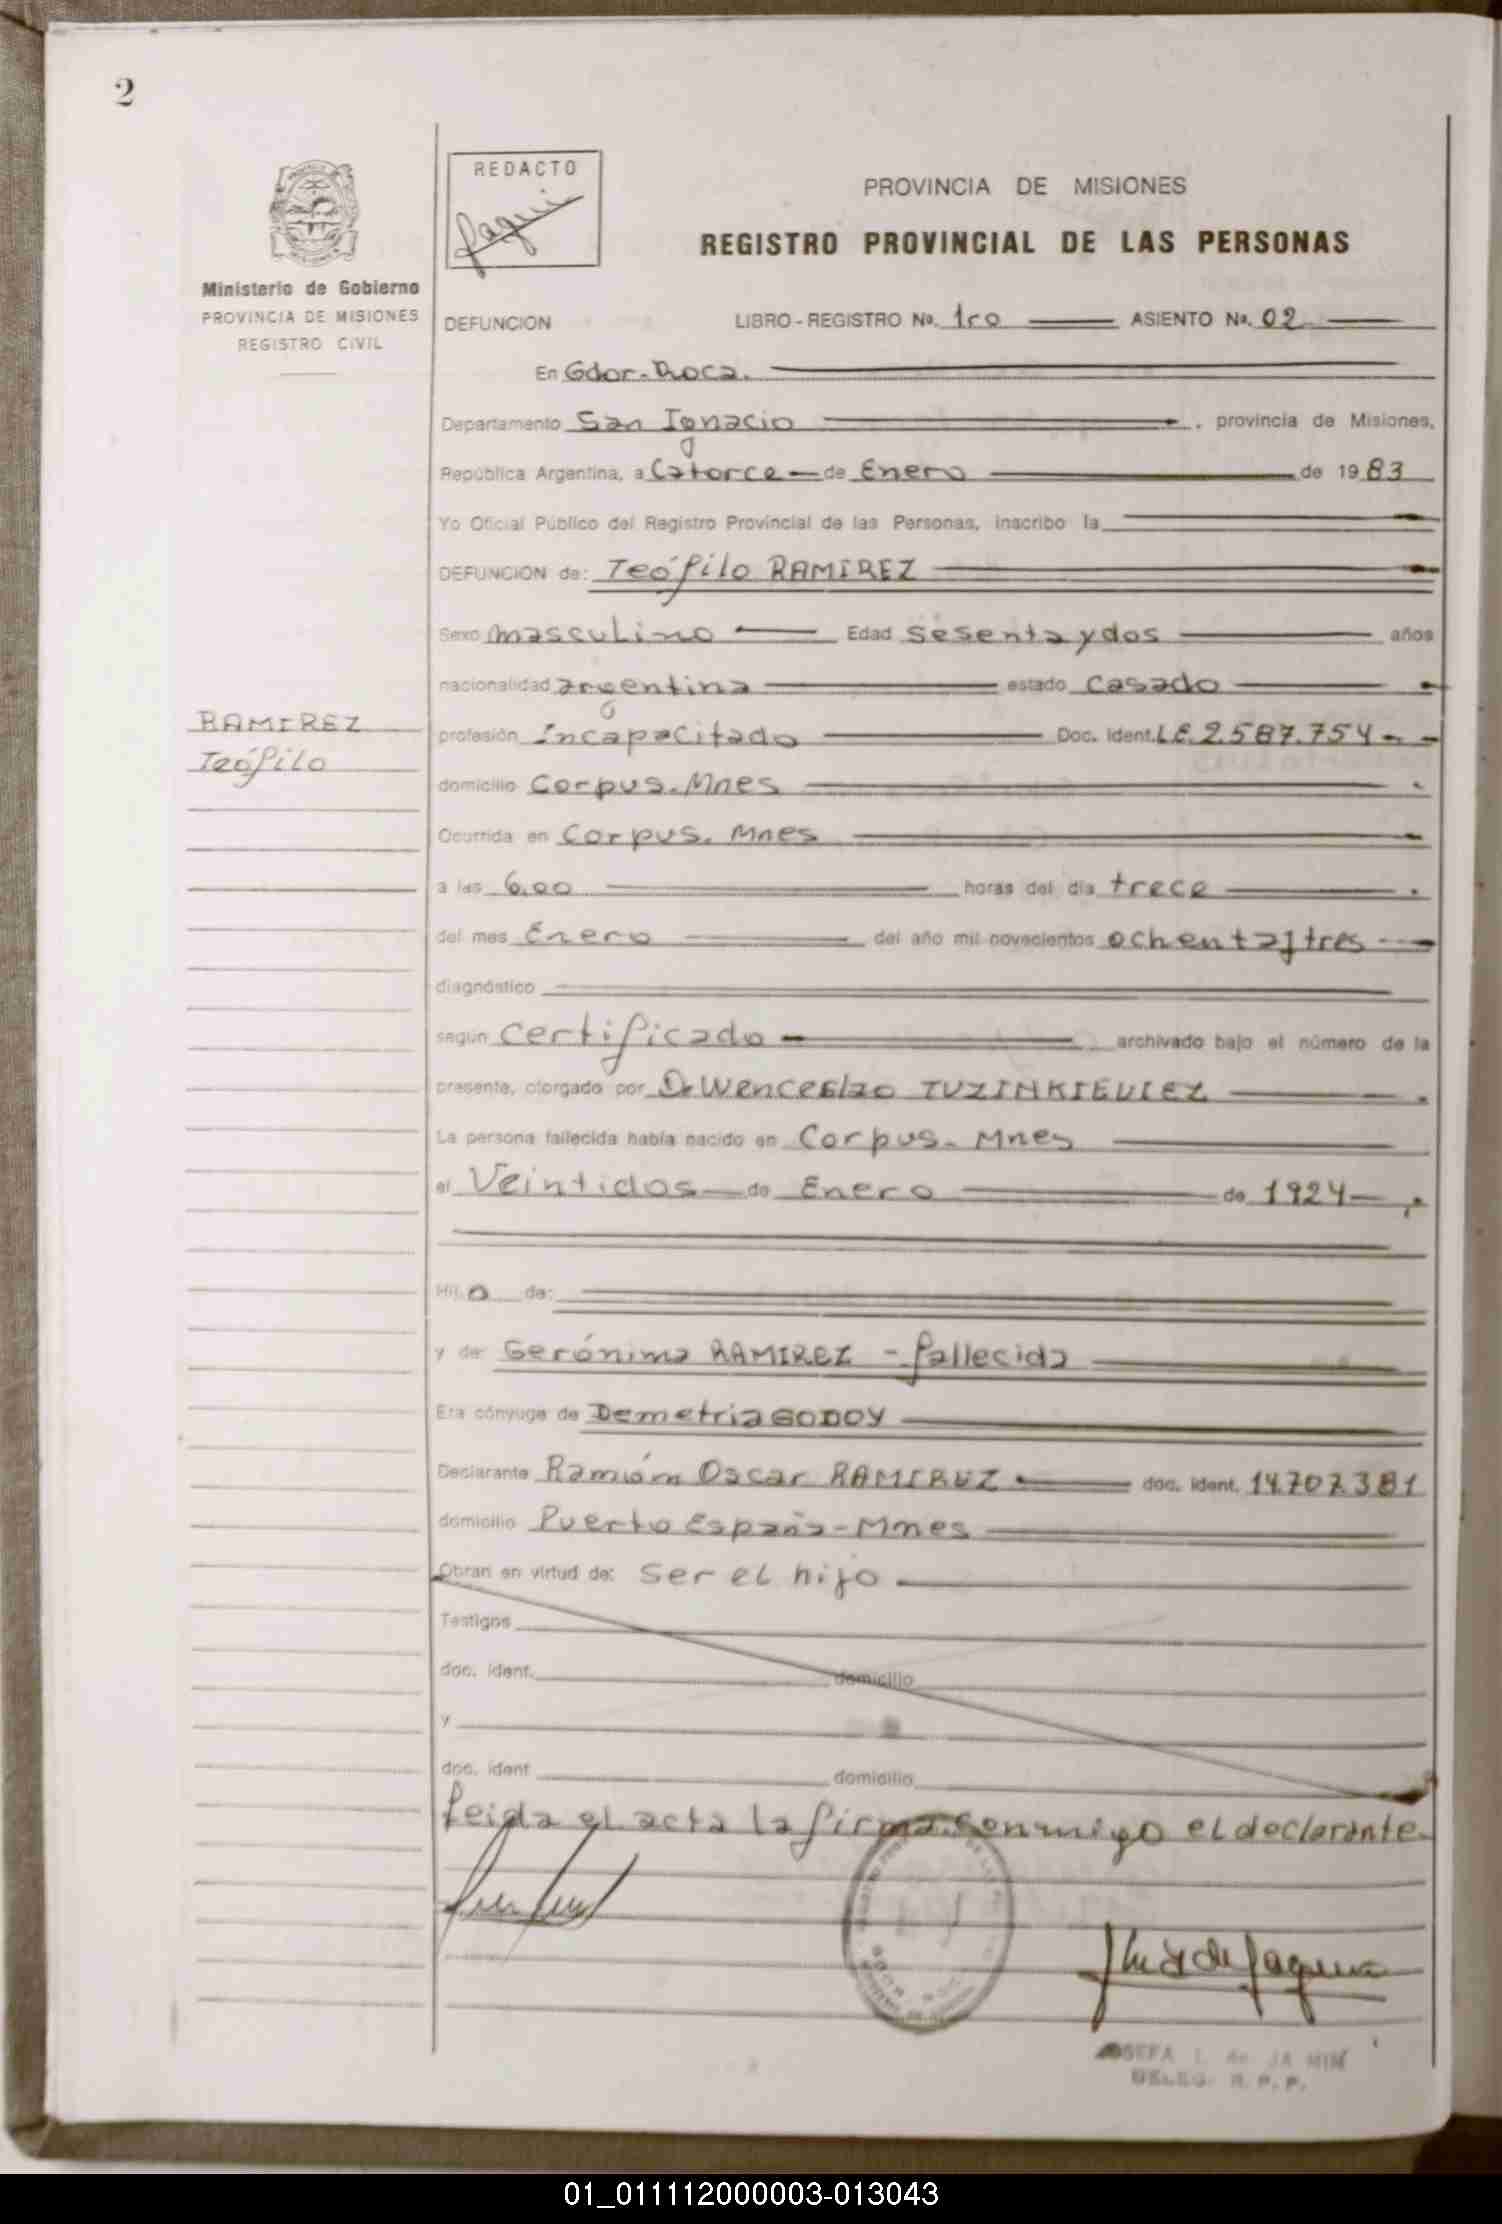 2
REDACTO
PROVINCIA DE MISIONES
REGISTRO PROVINCIAL DE LAS PERSONAS
Ministerio de Gobierno
PROVINCIA DE MISIONES
REGISTRO CIVIL
DEFUNCION LIBRO-REGISTRO No. 1ro ASIENTO No. 02
En Gdor-Roca.
Departamento San Ignacio, provincia de Misiones,
República Argentina, a Catorce de Enero de 1983
Yo Oficial Público del Registro Provincial de las Personas, inscribo la
DEFUNCION de: Teófilo RAMIREZ
Sexo masculino Edad sesenta y dos años
nacionalidad argentina estado casado
RAMIREZ
Teófilo
profesión Incapacitado Doc. Ident. L.E. 2.587.754
domicilio Corpus. Mnes
Ocurrida en Corpus. Mnes
a las 6,00 horas del día trece
del mes Enero del año mil novecientos ochenta y tres
diagnóstico
según certificado archivado bajo el número de la
presente, otorgado por Dr Wenceslao TUZINKIEVIEZ
La persona fallecida había nacido en Corpus- Mnes
el Veintidos de Enero de 1924
Hijo de:
y de Gerónima RAMIREZ - fallecida
Era cónyuge de Demetria GODOY
Declarante Ramón Oscar RAMIREZ doc. ident. 14.707.381
domicilio Puerto España-Mnes
Obran en virtud de: ser el hijo
Testigos
doc. ident. domicilio
y
doc. ident domicilio
Leida el acta la firma conmigo el declarante
DELEG. R. P. P.
01_011112000003-013043